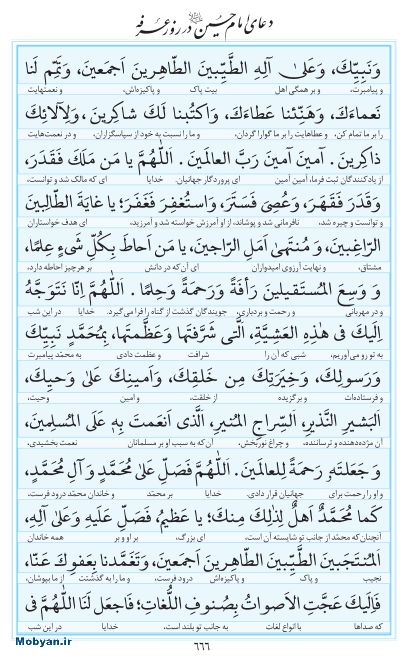 دعای امام حسین علیه‌السلام در روز عرفه
وَنَبِيِّكَ، وَعَلىٰ آلِهِ الطَّيِّبينَ الطّاهِرينَ اَجمَعينَ، وَتَمِّم لَنا
و پیامبرت، و بر همگی اهل بیت پاک و پاکیزه‌اش، و نعمتهایت
نَعماءَكَ، وَهَنِّئنا عَطاءَكَ، وَاكتُبنا لَكَ شاكِرينَ، وَلِآلائِكَ
را بر ما تمام کن، و عطاهایت را بر ما گوارا گردان، و ما را نسبت به خود از سپاسگزاران، و در نعمت‌هایت
ذاكِرينَ. آمينَ آمينَ رَبَّ العالَمينَ. اَللّٰهُمَّ يا مَن مَلَكَ فَقَدَرَ،
از یادکنندگان ثبت فرما، آمین آمین ای پروردگار جهانیان. خدایا ای که مالک شد و توانست،
وَقَدَرَ فَقَهَرَ، وَعُصِىَ فَسَتَرَ، وَاستُغفِرَ فَغَفَرَ؛ يا غايَةَ الطّالِبينَ
و توانست و چیره شد، نافرمانی شد و پوشاند، از او آمرزش خواسته شد و آمرزید. ای هدف خواستاران
الرّاغِبينَ، وَ مُنتَهىٰ اَمَلِ الرّاجينَ، يا مَن اَحاطَ بِكُلِّ شَىءٍ عِلمًا،
مشتاق، و نهایت آرزوی امیدواران ای آن‌که در دانش بر هر چیز احاطه دارد،
وَ وَسِعَ المُستَقيلينَ رَأفَةً وَرَحمَةً وَحِلمًا . اَللّٰهُمَّ اِنّا نَتَوَجَّهُ
و در مهربانی و رحمت و بردباری، جویندگان گذشت از گناه را فرا می‌گیرد. خدایا در این شب
اِلَيكَ فى هٰذِهِ العَشِيَّةِ، الَّتى شَرَّفتَها وَعَظَّمتَها، بِمُحَمَّدٍ نَبِيِّكَ
به تو رو می‌آوریم، شبی که آن را شرافت و عظمت دادی به محمّد پیامبرت
وَرَسولِكَ، وَخِيَرَتِكَ مِن خَلقِكَ، وَاَمينِكَ عَلىٰ وَحيِكَ،
و فرستاده‌ات و برگزیده از خلقت، و امین وحیت،
اَلبَشيرِ النَّذيرِ، السِّراجِ المُنيرِ، الَّذى اَنعَمتَ بِهِ عَلَى المُسلِمينَ،
آن مژده‌دهنده و ترساننده، و چراغ نوربخش، آن‌که به سبب او بر مسلمانان نعمت بخشیدی،
وَ جَعَلتَهُ رَحمَةً لِلعالَمينَ. اَللّٰهُمَّ فَصَلِّ عَلىٰ مُحَمَّدٍ وَ آلِ مُحَمَّدٍ،
و او را رحمت برای جهانیان قرار دادی. خدایا بر محمّد و خاندان محمّد درود فرست،
كَما مُحَمَّدٌ اَهلٌ لِذٰلِكَ مِنكَ؛ يا عَظيمُ، فَصَلِّ عَلَيهِ وَعَلىٰ آلِهِ،
آنچنان‌که محمّد از جانب تو شایسته آن است، ای بزرگ، بر او و بر همه خاندان
اَلمُنتَجَبينَ الطَّيِّبينَ الطّاهِرينَ اَجمَعينَ، وَتَغَمَّدنا بِعَفوِكَ عَنّا،
نجیب و پاک و پاکیزه‌اش درود فرست، و ما را به گذشتت از ما بپوشان،
فَاِلَيكَ عَجَّتِ الاَصواتُ بِصُنوفِ اللُّغاتِ؛ فَاجعَل لَنَا اللّٰهُمَّ فى
که صداها با انواع لغات به جانب تو بلند است. خدایا در این شب
۶۶۶
Mobyan.ir